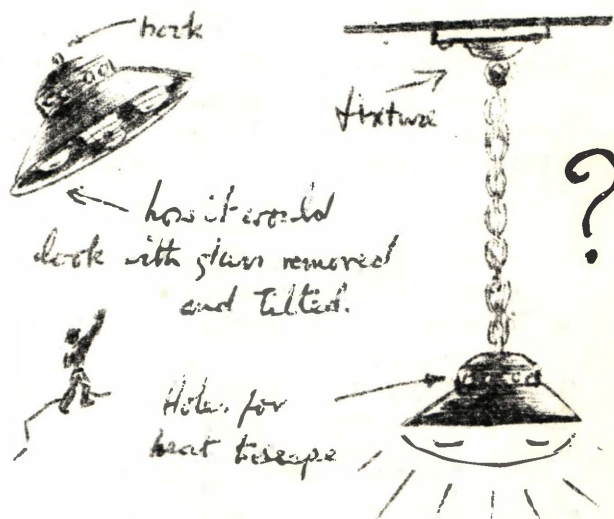 hook
fixture
?
how it would
look with glass removed
and Tilted.
Holes for
heat to escape